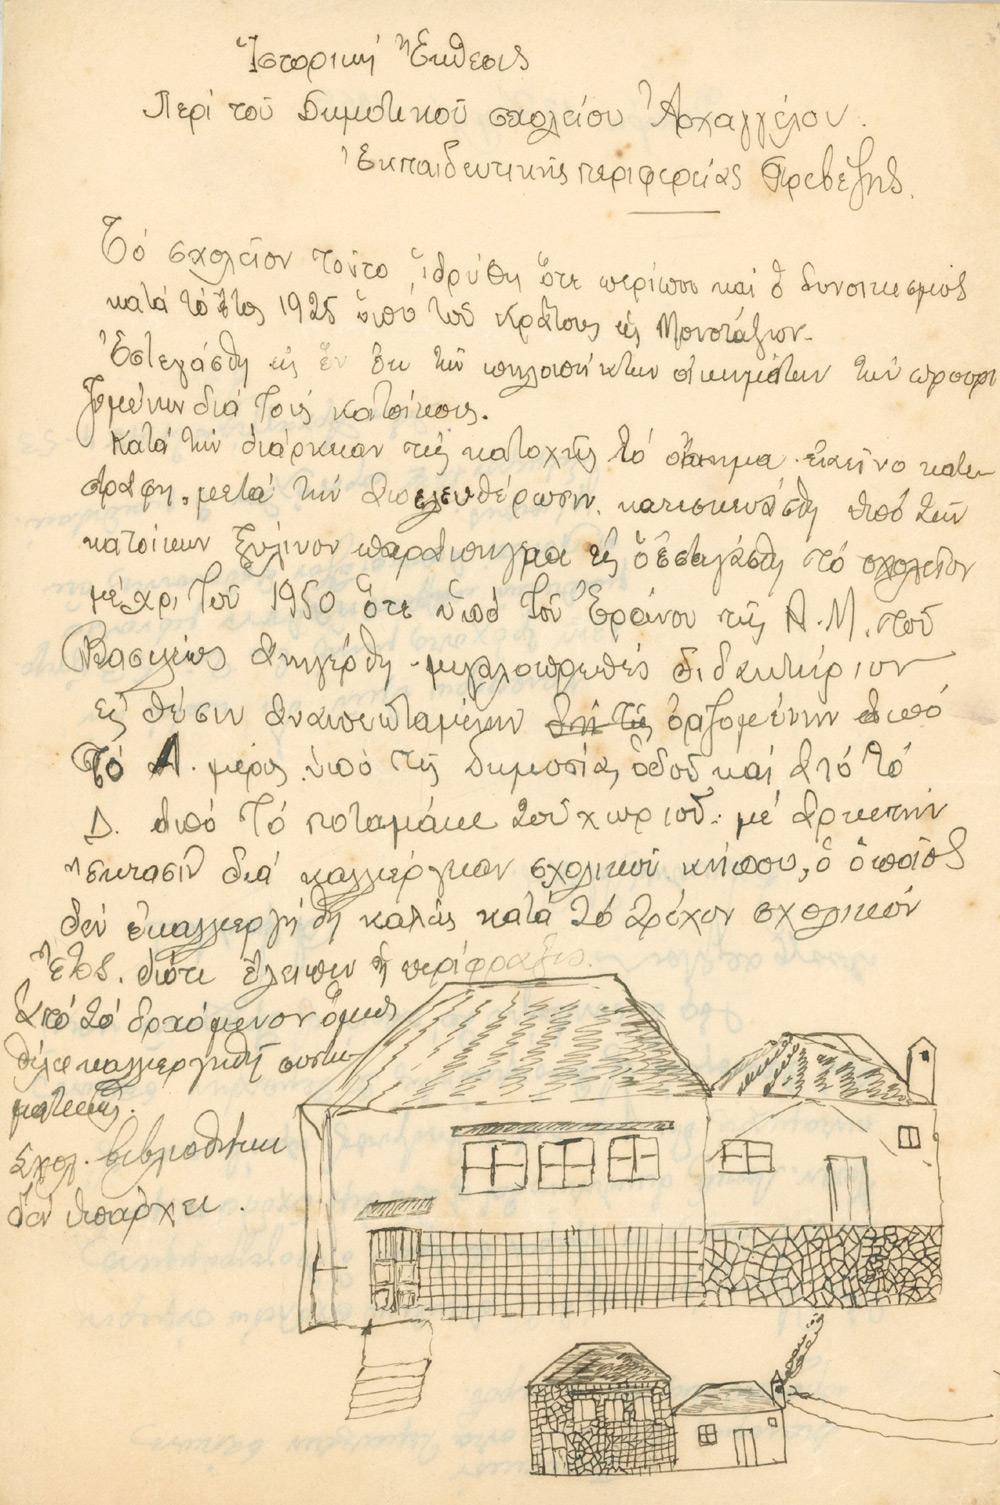 Ἱστορική Ἔκθεσις
Περί τοῦ Δημοτικοῦ σχολείου Ἀρχαγγέλου.
Ἐκπαιδευτικῆς περιφερείας Πρεβέζης.
Τό σχολεῖον τοῦτο ἱδρύθη ὅτε περίπου καί ὁ συνοικισμός
κατά τό ἔτος 1925 ὑπό τοῦ Κράτους εἰς
Ἐστεγάσθη εἰς ἕν ἐκ τῶν οἰκημάτων τῶν προορι
ζομένων διά τούς κατοίκους.
Κατά τήν διάρκειαν τῆς κατοχῆς τό οἴκημα ἐκεῖνο κατε
στράφη, μετά τήν ἀπελευθέρωσιν, κατεσκευάσθη ὑπό τῶν
κατοίκων ξύλινον παράπηγμα εἰς ὅ ἐστεγάσθη τό σχολεῖον
μέχρι τοῦ 1950 ὅτε ὑπό τοῦ Ἐράνου τῆς Α.Μ. τοῦ
Βασιλέως ἀνηγέρθη μεγαλοπρεπές διδακτήριον
εἰς θέσιν ἀναπεπταμένην ὁριζομένην ἀπό
τό Α. μέρος ὑπό τῆς δημοσίας ὁδοῦ καί ἀπό τό
Δ. ἀπό τό ποταμάκι τοῦ χωριοῦ. μέ ἀρκετήν
ἔκτασιν διά καλλιέργειαν σχολικοῦ κήπου, ὁ ὁποῖος
δέν ἐκαλλιεργήθη καλῶς κατά τό τρέχον σχολικόν
ἔτος. διότι ἔλειπεν ἡ περίφραξις.
Ἀπό τό ἐρχόμενον ὅμως
θέλει καλλιεργηθῆ συστη
ματικῶς.
Σχολ. βιβλιοθήκη
δέν ὑπάρχει.